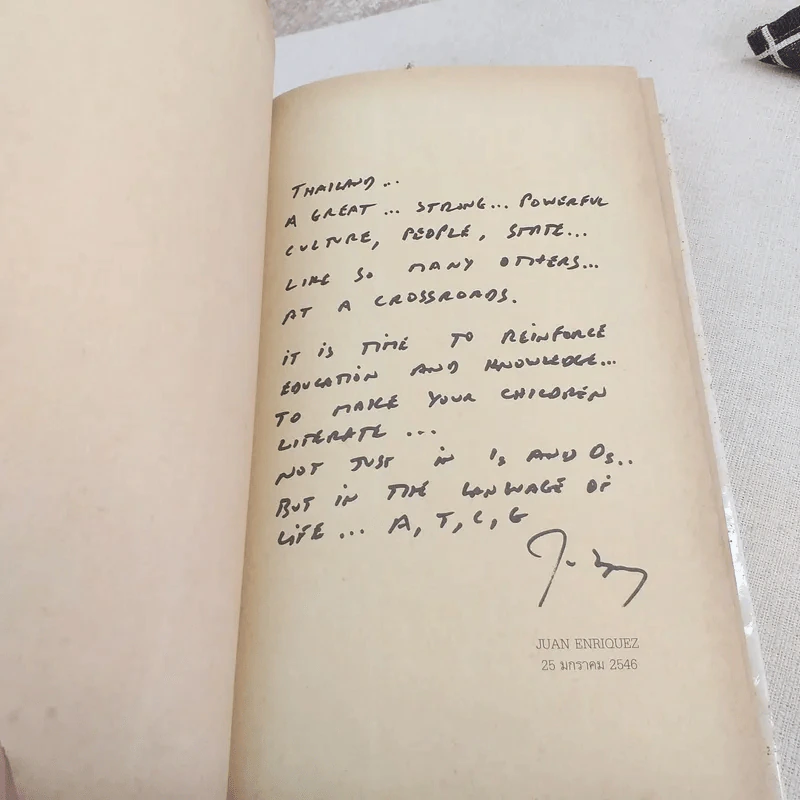 THAILAND...
A GREAT... STRONG... POWERFUL
CULTURE, PEOPLE, STATE...
LIKE SO MANY OTHERS...
AT A CROSSROADS.
IT IS TIME TO REINFORCE
EDUCATION AND KNOWLEDGE...
TO MAKE YOUR CHILDREN
LITERATE...
NOT JUST IN 1s AND 0s..
BUT IN THE LANGUAGE OF
LIFE... A, T, C, G
JUAN ENRIQUEZ
25 มกราคม 2546